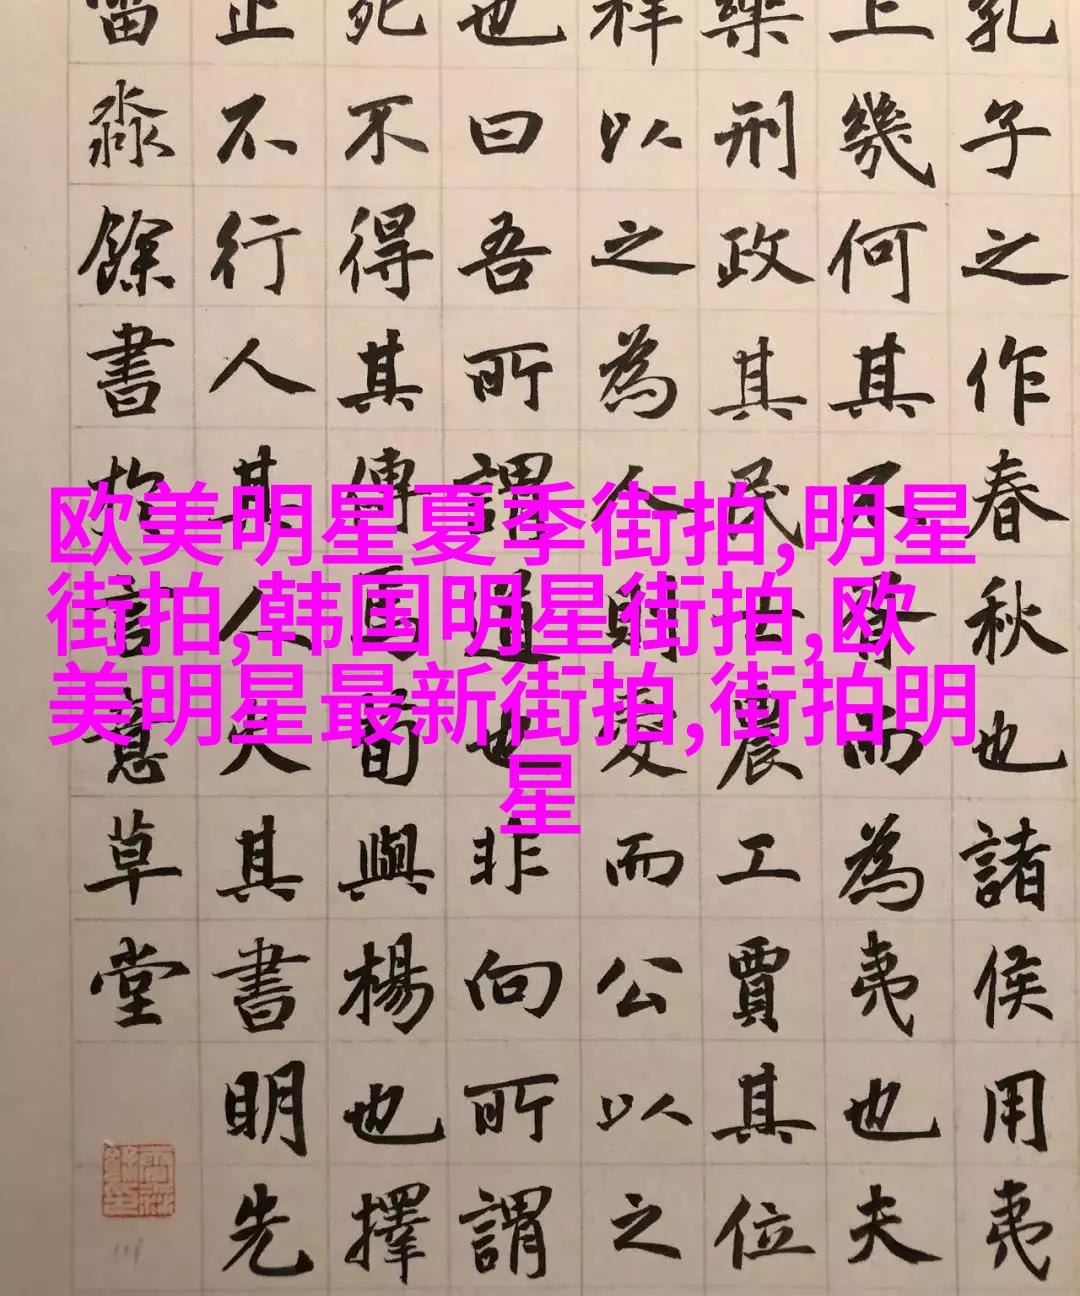 孔子之作春秋也諸侯用夷
上幾何其不胥而為夷也夫
樂刑政其民士農工賈其位
祥以之為人則愛而公以之
也曰吾所謂道也非向所謂
死不得其傳焉荀與楊也擇
止不行人其人火其書明先
淼餘書於言意草堂
欧美明星夏季街拍,明星
街拍,韩国明星街拍,欧
美明星最新街拍,街拍明
星